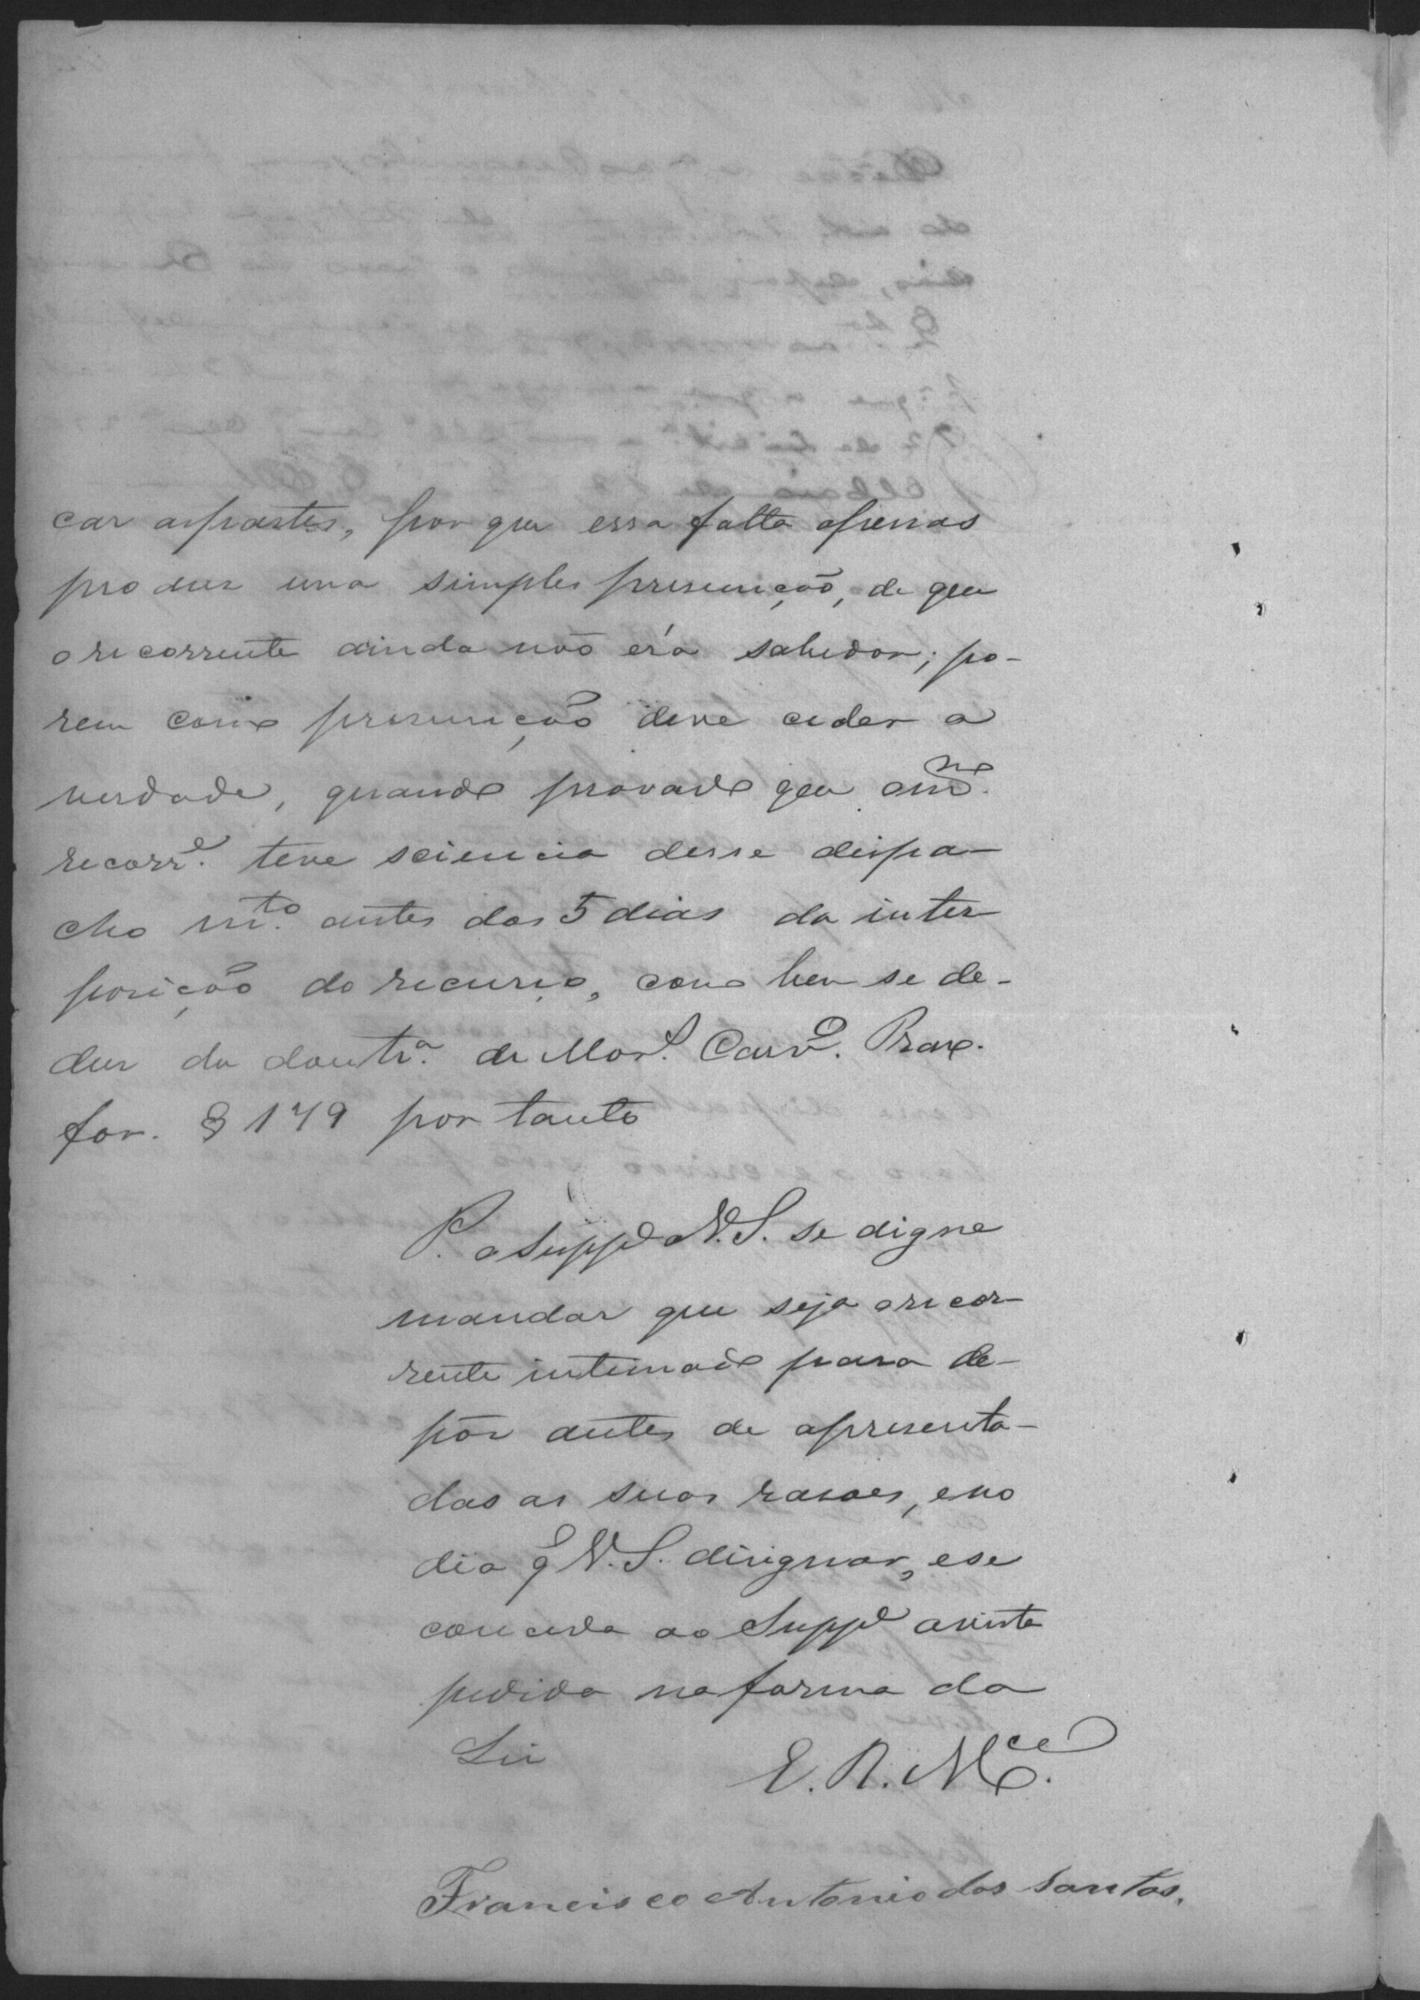 car aspartes, por que essa falta apenas
produz uma simples presumçaõ, de que
o recorrente ainda naõ éra sabedor; po-
rem como presumpçaõ deve ceder a
verdade, quando provado que o mmo.
recorre. teve sciencia desse despa-
cho mto. antes dos 5 dias da inter
posiçaõ do recurso, como bem se de-
duz da doutra. de Mor.s Carvo. Prax.
for. § 179 por tanto
P. o Suppe V. S. se digne
mandar que seja o recor-
rente intimado para de-
pôr antes de apresenta-
das as suas rasoes, e no
dia q V. S. disignar, e se
conceda ao Suppe a vista
pedida na forma da
Lei
E. R. Mce.
Francisco Antonio dos Santos.